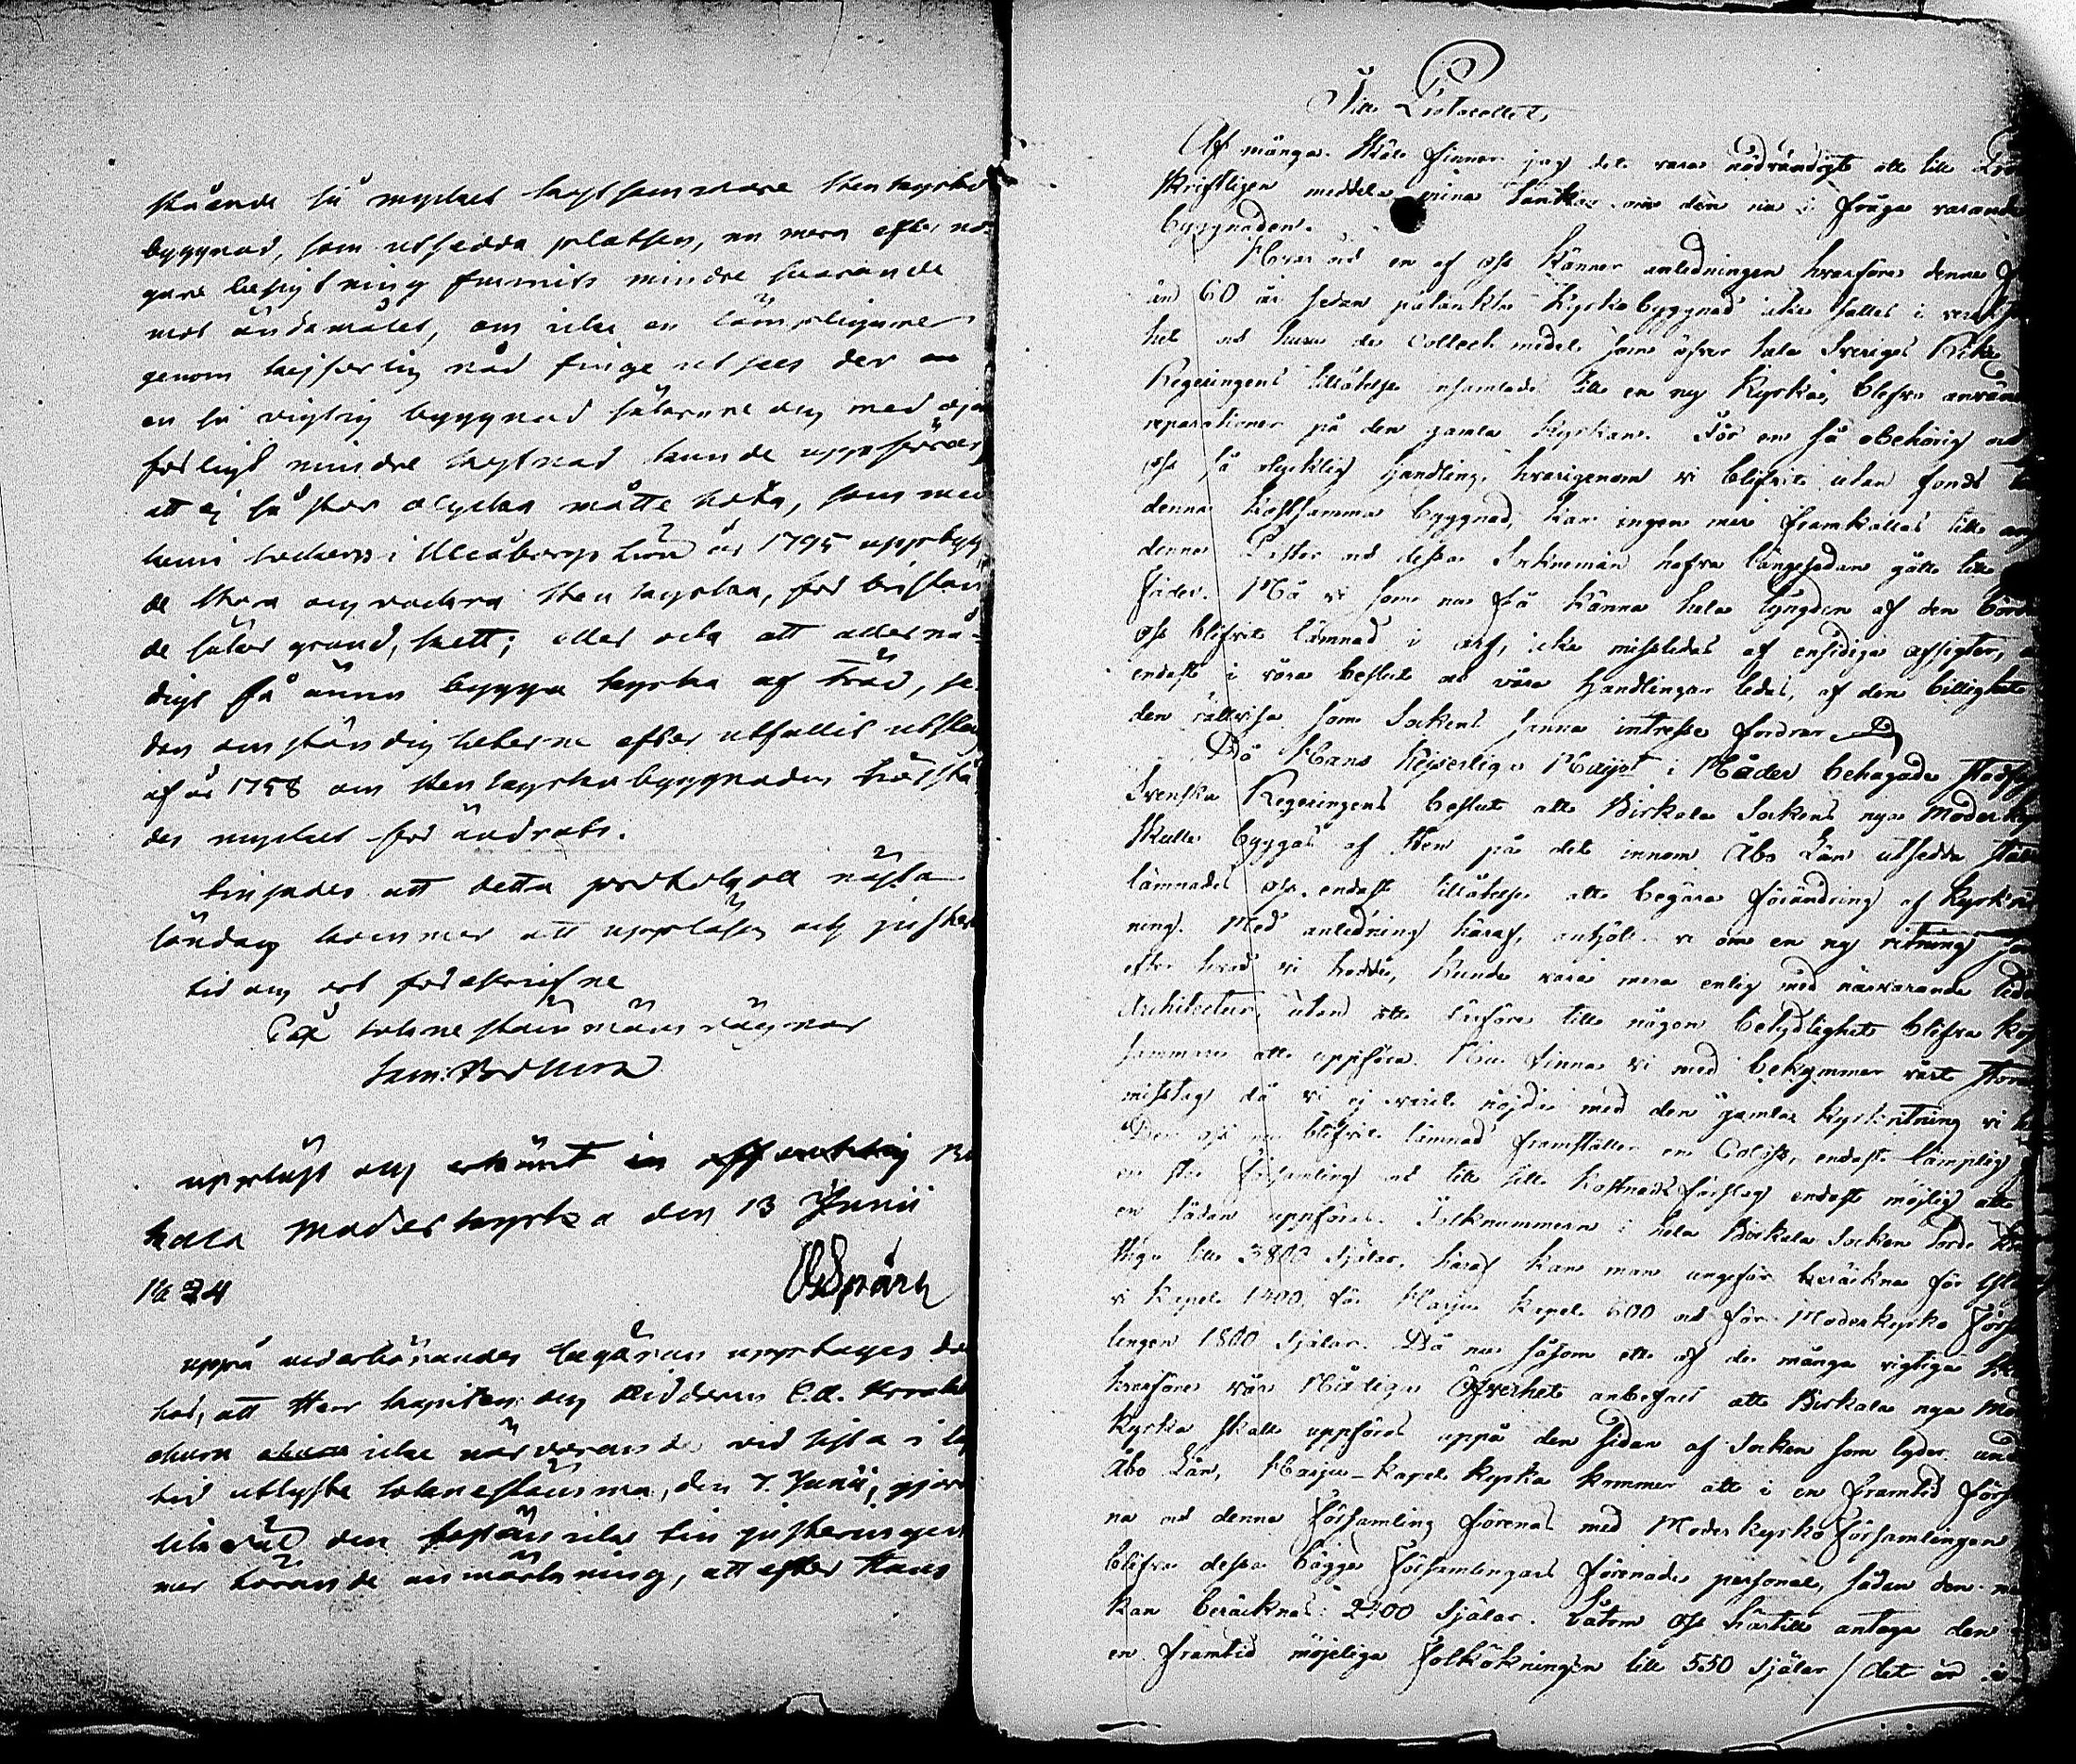 stående så mycket kostsammare stenkyrko
byggnad, som utsedda platsen, nu mera efter no-
gare besigtning funnits mindre svarande
mot ändamålet, om icke en lämpligare
genom kejserlig nåd finge utses der
en så vigtig byggnad säkrare och med ojem
förligt mindre kostnad kunde uppföras,
att ej så stor olycka måtte hota, som med
kemi sockens i Uleåborgs Län år 1795 uppbygg
de stora och vackra sten kyrka, för bristan
de säker grund, skett; eller ock att allernå-
digst få ännu bygga kyrka af Träd, se-
dan omständigheterne efter utfallit utslag
af år 1758 om stenkyrko byggnaden
des mycket förändrats.
Tingades att detta protokoll nästa
söndag kommer att uppläsas och justeras
tid och ort föreskrifne
På sockne stämmans vägnar
Sam: Bodhin
uppläst och erkänt in offentlig Bir
kala Moderkyrka den 13 Junii
1824
uppå vederbörandes begäran upptages
hos, att Herr kapiten och Ridderen C. A.
icke närvarande vid sista i
tid utlyste sockne stämma, den 7. Junii, gjort
den icke tin justeringen
mer hörande anmärkning, att efter Hans
Till Protocollet,
Af många Skäl finner jag det vara nödvändigt att till Pro
skriftligen meddela mina tankar om den nu i fråga varande
byggnaden.
Hvar och en af oss känner anledningen hvarföre denna f
än 60 år sedan påtänkta Kyrkobyggnad icke satts i verkstäl
het och huru de Collect medel som öfver hela Sveriges Rike
Regeringens tillåtelse insamlades till en ny Kyrka, blefvo använd
reparationer på den gamla Kyrkan. För en så obehörig och
oss så olycklig handling, hvarigenom vi blifvit utan fond
denna kostsamma byggnad, kan ingen mer framkallas till an
dennes Pastor och dessa Socknemän hafva längesedan gått till
fäder. Må vi som nu få känna hela tyngden af den börda
oss blifvit lämnad i arf, icke missledas af ensidiga afsigter,
endast i våra beslut och våra handlingar ledas, af den billighet
den rättvisa som Sockens sanna intresse fordrar
Då Hans Kejserliga Majjst i Nåder behagade stadfäs
Svenska Regeringens beslut att Birkala Sockens nya Moderkyr
skulle byggas af Sten på det innom Åbo Län utsedda ställe
lämnades oss endast tillåtelse att begära förändring af Kyrkrit
ning. Med anledning häraf, anhöllo vi om en ny ritning som
efter hvad vi trodde, kunde vara mera enlig med närvarande tide
Architectur, utan att därföre till någon betydlighet blifva kost
sammare att uppföra. Nu finna vi med bekymmer vårt stora
misstag då vi ej varit nöjde med den gamla Kyrkritning vi
Den oss nu blifvit lämnad framställer en Coloss, endast lämplig
en stor församling och till sitt kostnads förslag endast möjlig att
en sådan uppföras. Folknummern i hela Birkala Socken torde
stiga till 3800 Själar, häraf kan man ungefär beräkna för
vi Kapell 1400, för Harju Kapell 600 och för Moderkyrko förs
lingen 1800 Själar. Då nu såsom ett af de många vigtiga skäl
hvarföre vår Nådiga Öfverhet anbefalt att Birkala nya Mod
Kyrka skall uppföras uppå den sidan af Socken som lyder und
Åbo Län, Harju-Kapell kyrka kommer att i en framtid förf
na och denna församling förenas med Moderkyrko församlingen
blifva dessa bägge församlingars förenade personal, sådan den nu
kan beräknas: 2400 Själar. Låtom oss härtill antaga den
en framtid möjeliga folkökningen till 550 Själar / det är